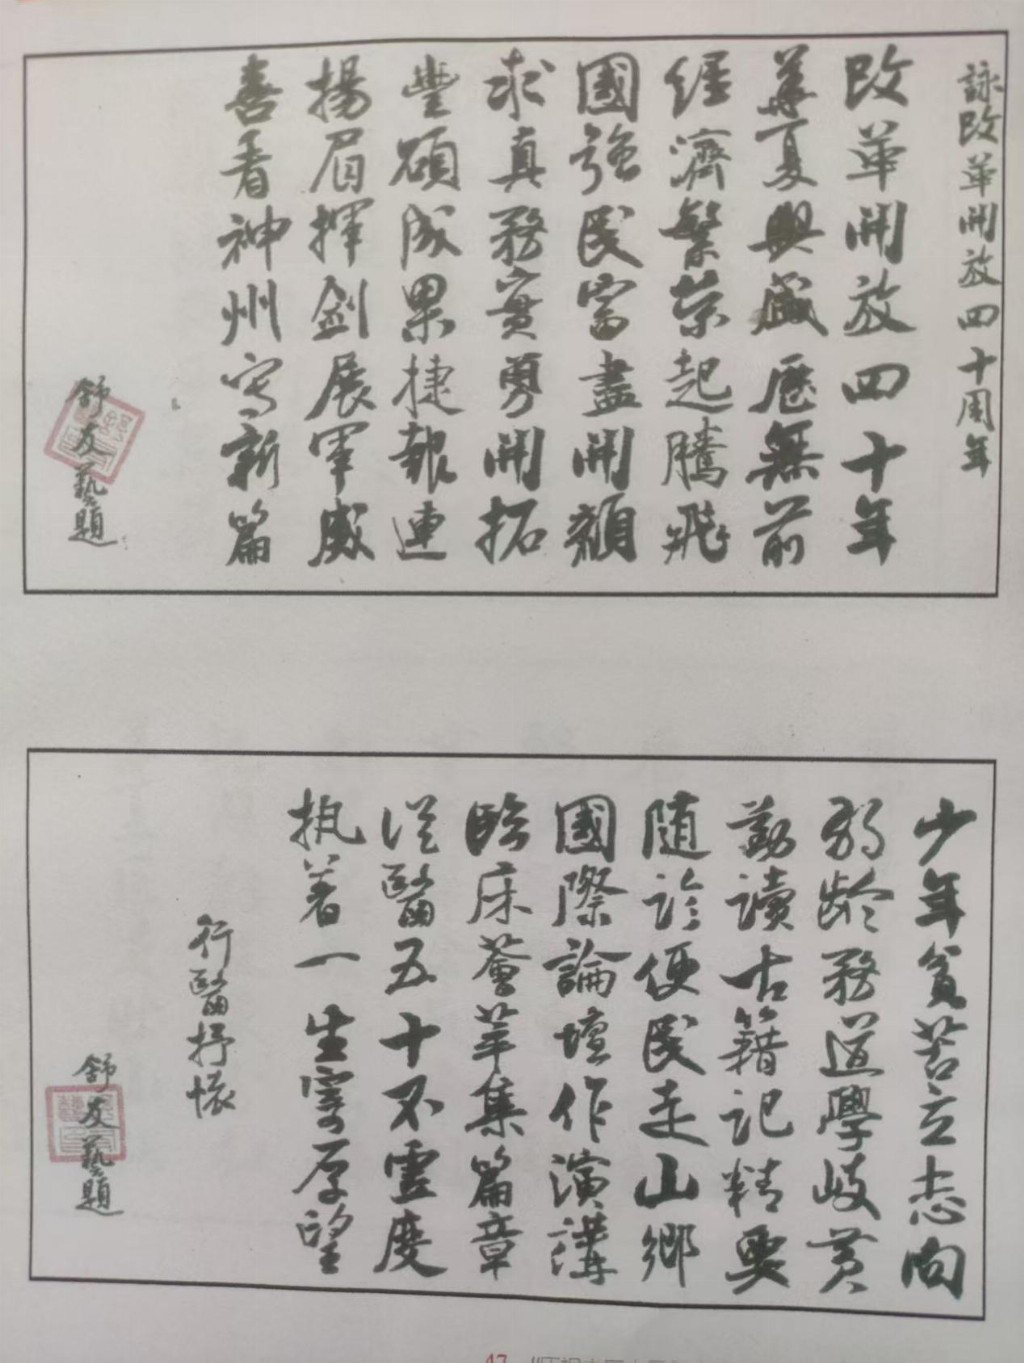 詠改革開放四十周年
改革開放四十年
華夏興盛歷無前
經濟繁榮起騰飛
國強民富盡開顏
求真務實勇開拓
豐碩成果捷報連
揚眉揮劍展軍威
喜看神州寫新篇
舒友藝題
少年貧苦立志向
弱齡務道學岐黃
勤讀古籍記精要
隨診便民走山鄉
國際論壇作演講
臨床薈萃集篇章
從醫五十不虛度
執著一生寄厚望
行醫抒懷
舒友藝題
47